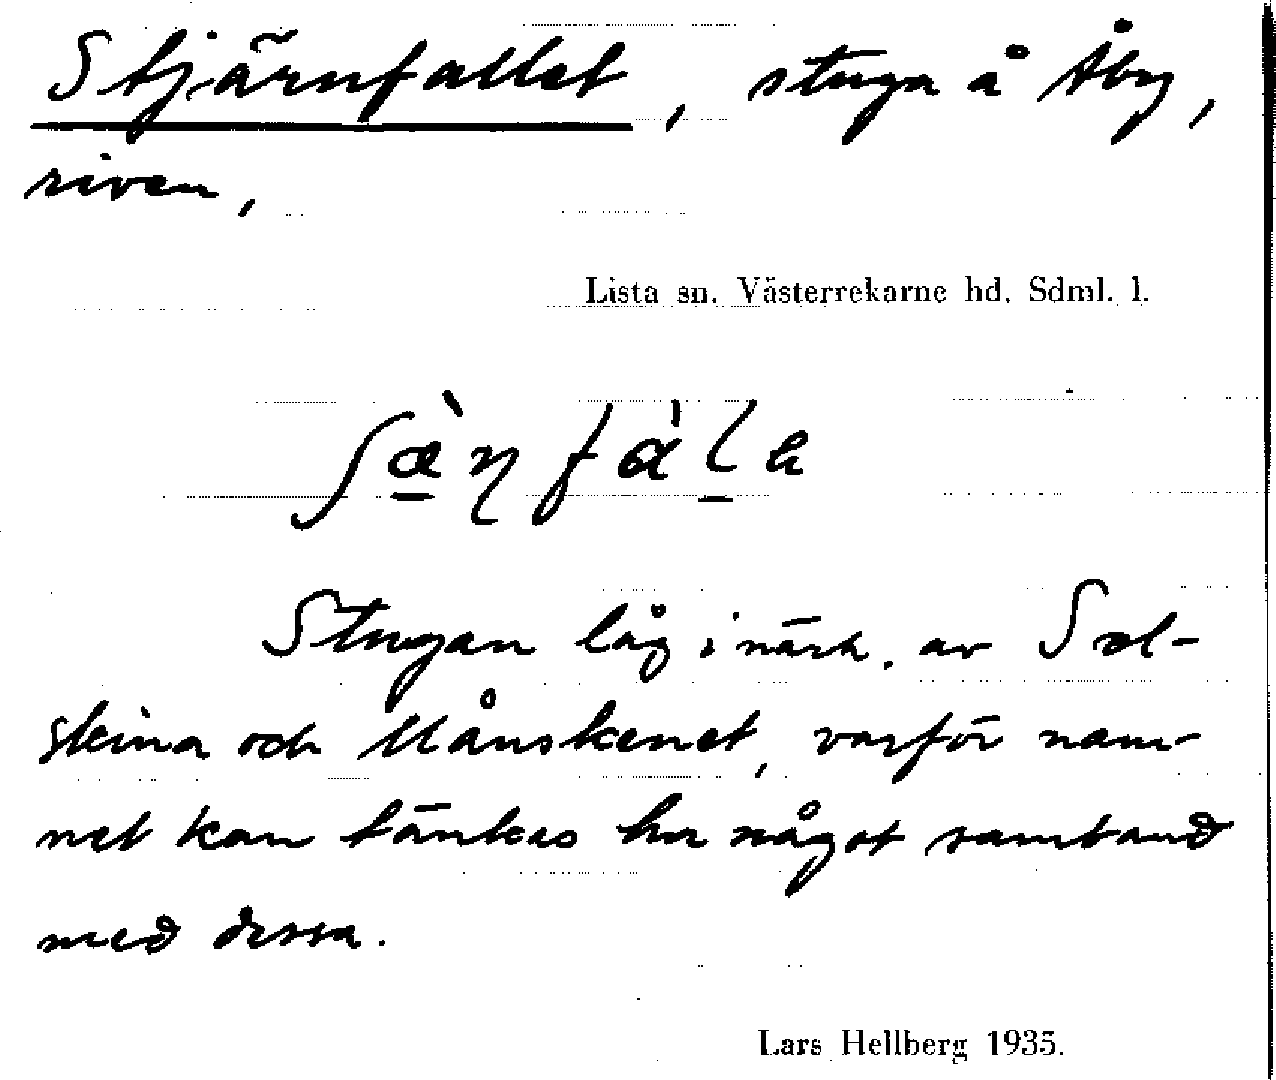 Stjärnfallet, stuga å Åby,
riven,
Lista sn. Västerrekarne hd. Sdml. l.
Stugan låg i närh. av Sol-
skina och Månskenet, varför nam-
net kan tänkas ha något samband
med dessa.
Lars Hellberg 1935.